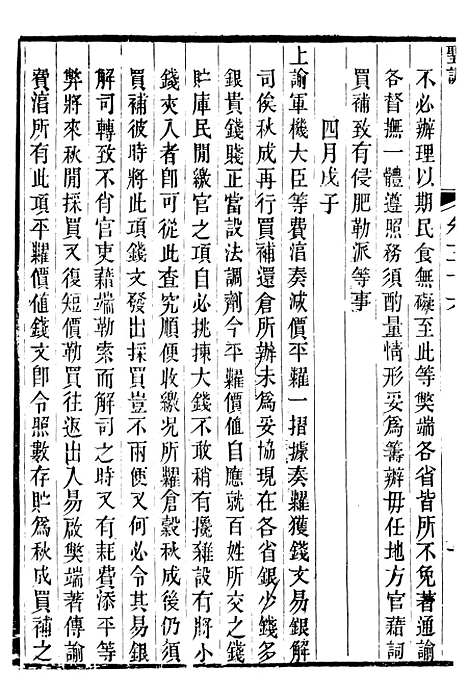 聖訓
不必辦理以期民食無礙至此等弊端各省皆所不免著通諭
各督撫一體遵照務須酌量情形妥爲籌辦毋任地方官藉詞
買補致有侵肥勒派等事
四月戊子
上諭軍機大臣等費淳奏減價平糶一摺據奏糶獲錢文易銀解
司俟秋成再行買補還倉所辦未爲妥協現在各省銀少錢多
銀貴錢賤正當設法調劑今平糶價值自應就百姓所交之錢
貯庫民間繳官之項自必挑揀大錢不敢稍有攙雜設有將小
錢夾入者卽可從此查究順便收繳况所糶倉穀秋成後仍須
買補彼時將此項錢文發出採買豈不兩便又何必令其易銀
解司轉致不肖官吏藉端勒索而解司之時又有耗費添平等
弊將來秋間採買又復短價勒買往返出入易啟弊端著傳諭
費淳所有此項平糶價值錢文卽令照數存貯爲秋成買補之